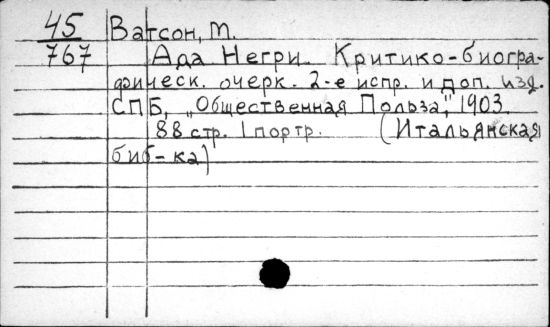 45 Ватсон, М.
767 Ада Негри. Критико-биогра-
фическ. очерк. 2-е испр. и доп. изд.
СПБ, „Общественная Польза", 1903.
88 стр. 1 портр. (Итальянская
биб-ка)